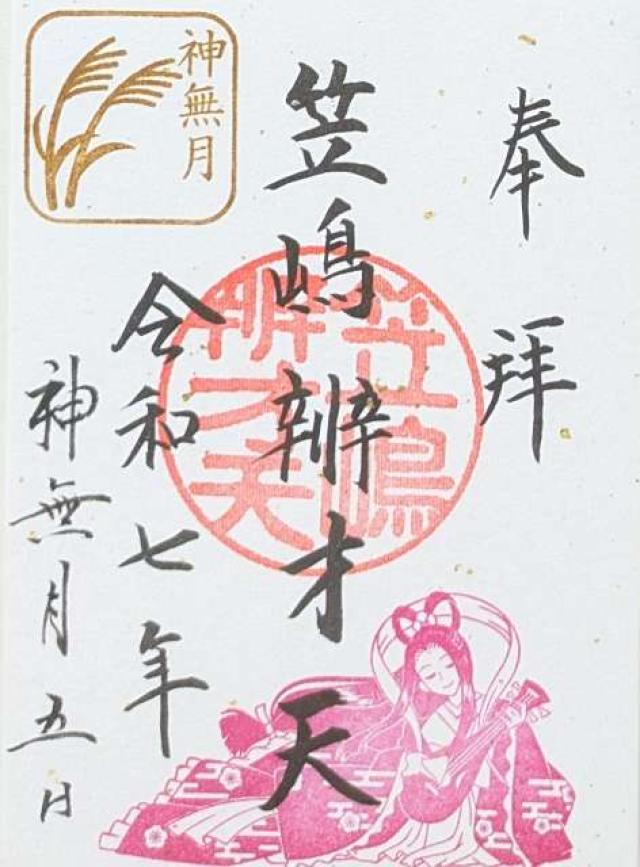 奉拝
笠嶋辨才天
笠嶋
辨才天
令和七年
神無月五日
神無月